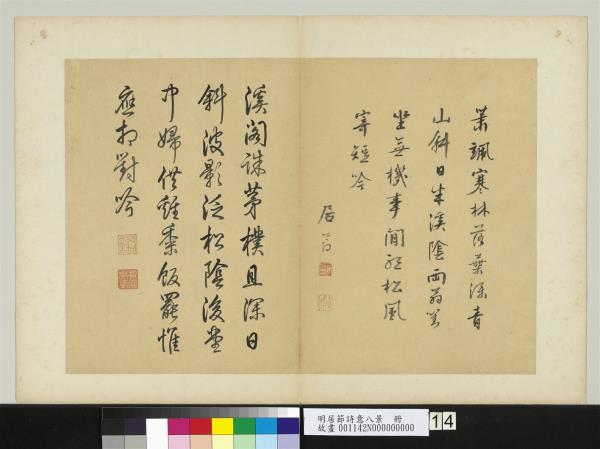 蕭颯寒林落葉深青
山斜日半溪陰兩翁對
坐無機事閒聽松風
寄短吟
居節
溪閣誅茅樸且深日
斜波影泛松陰後堂
中婦供雞黍飯罷惟
應相對吟
明居節詩意八景 冊
故畫 001142N000000000
14